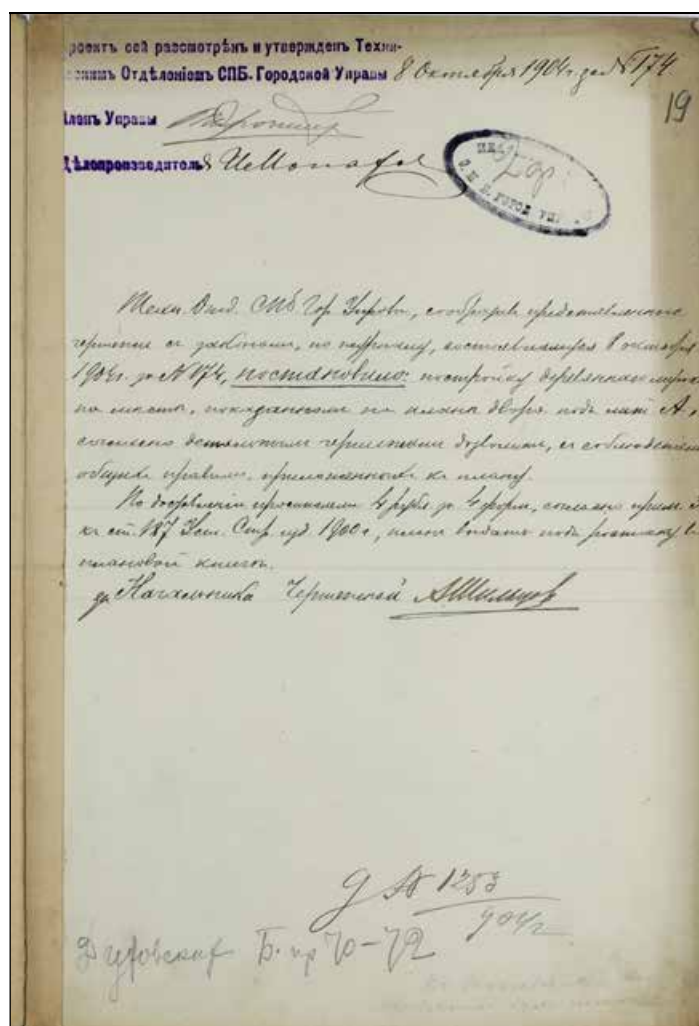 роектъ сей разсмотрѣнъ и утвержденъ Техни-
ескимъ Отдѣленіемъ СПБ. Городской Управы 8 Октября 1904г. за № 174
19
Членъ Управы
Дѣлопроизводитель
ГОРОД
Техн. Отд. СПб Гор. Управы, сообразивъ представленные
чертежи съ законами, по журналу, состоявшемуся 8 октября
1904г. за № 174, постановило: постройку деревянных
на мѣстѣ, показанномъ на планѣ двора подъ лит А,
согласно детальнымъ чертежамъ дозволить, съ соблюденіем
общихъ правилъ, приложенныхъ къ плану.
По доставленіи просителемъ 4 рубл. за 4 форм., согласно прим.
къ ст. 187 Уст. Стр. изд. 1900г., планъ выдать подъ росписку в
плановой книгѣ.
За Начальника Чертежной
Д № 1253
904г
Б. пр 70-72